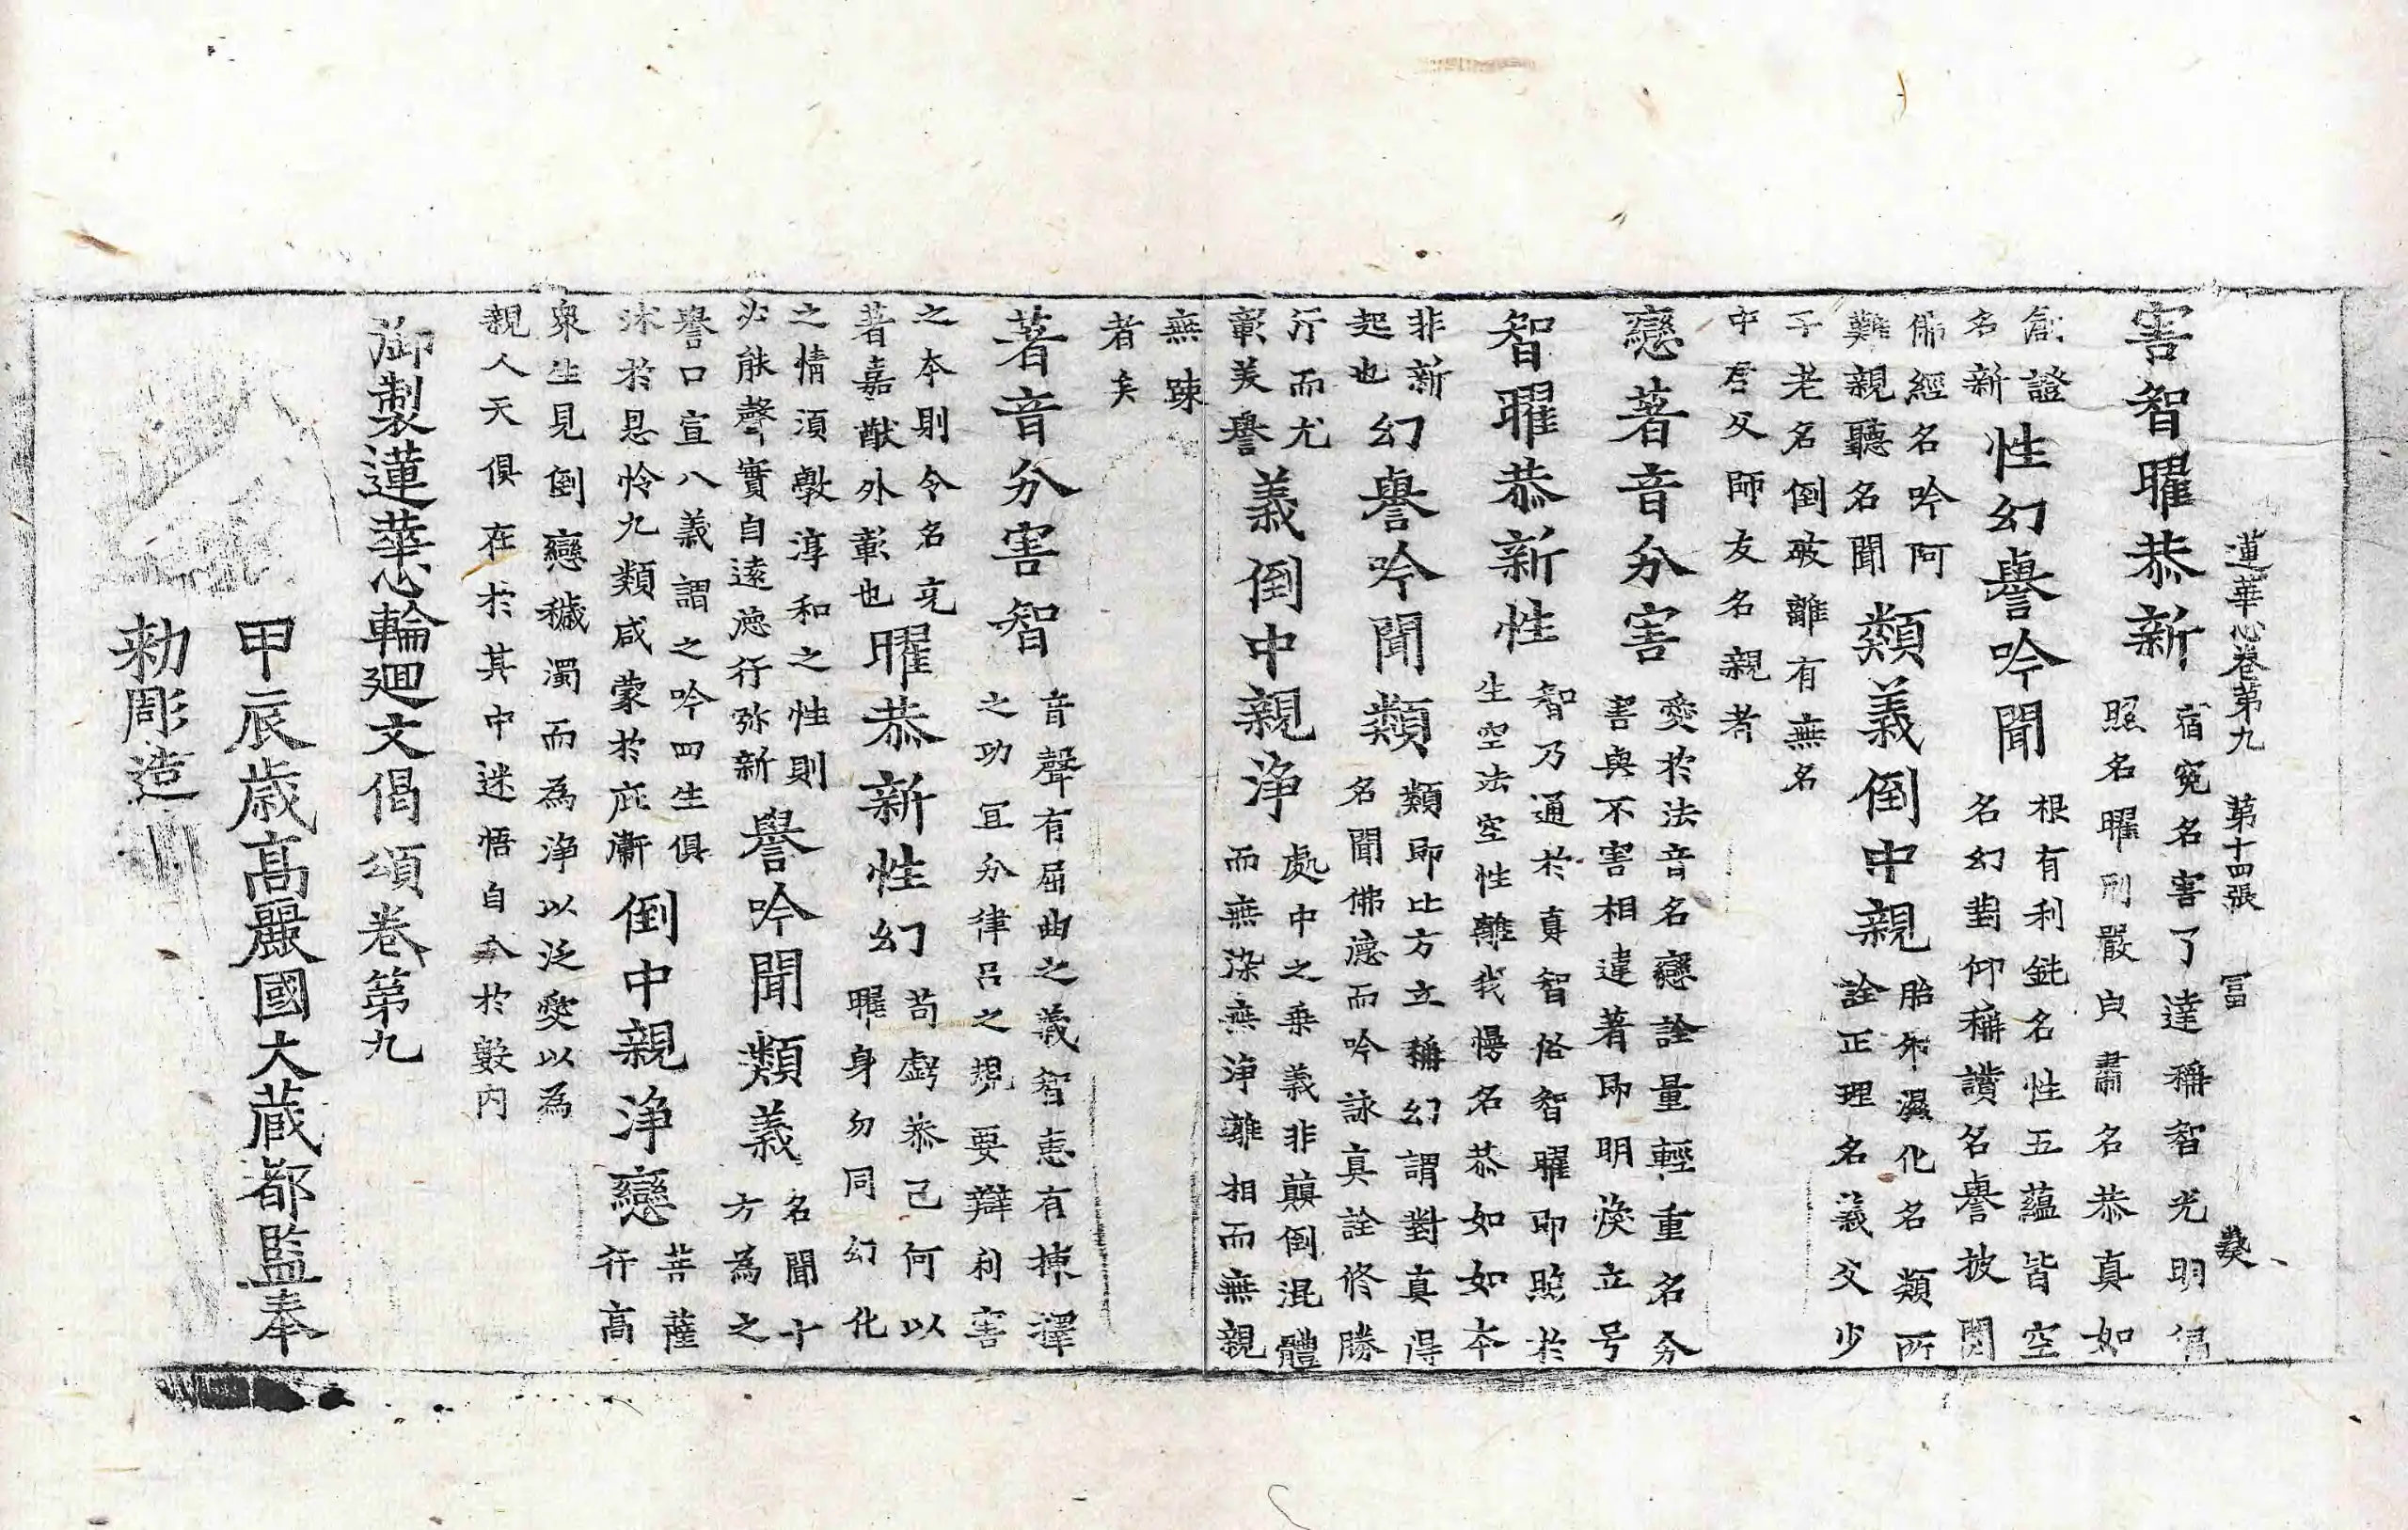 蓮華心卷第九 第十四張 冨
害智曜恭新 宿寃名害了達稱智光明偈
照名曜刑嚴貞肅名恭真如
創證
名新 性幻譽吟聞 根有利鈍名性五蘊皆空
名幻對仰稱讚名譽披閱
佛經名吟阿
難親聽名聞 類義倒中親 胎卵濕化名類所
詮正理名義父少
子老名倒破離有無名
中君父師友名親者
戀著音分害 愛於法音名戀詮量輕重名分
害與不害相違著即明渙立号
智曜恭新性 智乃通於真智俗智曜即照於
生空法空性離我慢名恭如如本
非新
起也 幻譽吟聞類 類即比方立稱幻謂對真得
名聞佛德而吟詠真詮修勝
行而尤
彰美譽 義倒中親淨 處中之乘義非顛倒混體
而無染無淨離相而無親
無踈
者矣
著音分害智 音聲有屈曲之義智恵有揀擇
之功宜分律呂之規要辯利害
之本則令名克
著嘉猷外彰也 曜恭新性幻 苟虧恭己何以
曜身勿同幻化
之情須斅淳和之性則
必能聲實自遠德行弥新 譽吟聞類義 名聞十
方為之
譽口宣八義謂之吟四生俱
沐於恩怜九類咸蒙於庇廕 倒中親淨戀 菩薩
行高
衆生見倒戀穢濁而為淨以泛愛以為
親人天俱在於其中迷悟自分於數內
御製蓮華心輪廻文偈頌卷第九
甲辰歲高麗國大藏都監奉
勑彫造